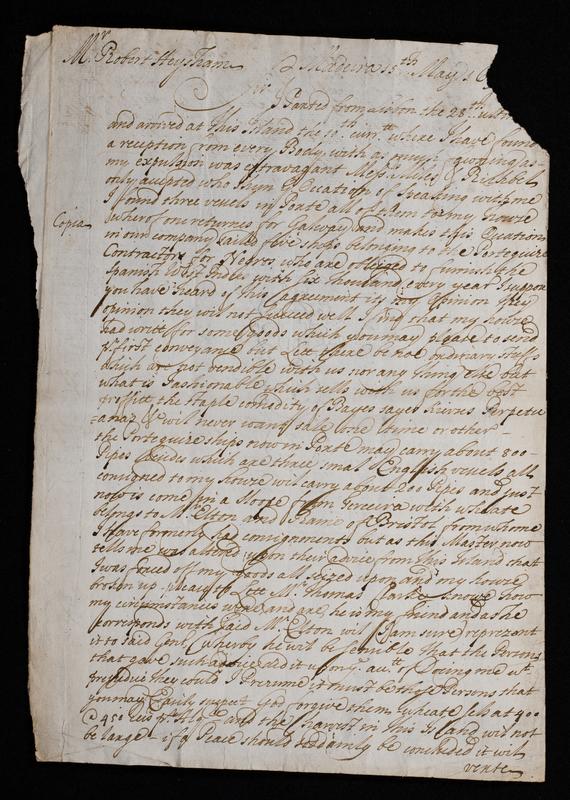 Mr. Robert Heysham
Madeira 15th May
Sr. I Parted from Lisbon the 28th ulti
and arrived at this Island the 10th currt where I have found
a reception from every Body with as much
my expulsion was extravagant Messrs Miles & Richbel
only excepted who shun occation of speaking with me
I found three vessels in Porte all of them to my howse
Copia
whereof one returnes for Galway and makes this occation
in our company sailed five ships belonging to the Porteguize
Contractors for Negros who are obliged to furnish the
Spanish West Indies with six thousand every year I suppose
you have heard of this agreement its my opinion
opinion they wil not succeed well I find that my howse
had writt for some goods which you may please to send
pr first conveyance but Lett there be noe ordinary stuffs
which are not vendible with us nor any thing else but
what is Fashionable which sells with us for the best
proffitt the staple comodity of Bayes sayes Perpetu
anas &c will never want sale one time or other
the Porteguize ships now in Porte may carry about 800
Pipes besides which are three small English vessels all
consigned to my howse wil carry about 200 Pipes and just
now is come in a from Tercera with wheate
belongs to Mr. Elton and of Bristol from whome
I have formerly had consignements but as this Master now
tells me was altered upon their advice from this Island that
I was forced off my goods all seized upon and my howse
broken up, pray Lett Mr. Thomas knowe how
my circumstances were and are, he is my friend and as he
corresponds with said Mr. Elton wil I am sure represent
it to said Gent. wherby he wil be sensible that the Persons
that gave such advice did it upon acct. of doing me wt.
prejudice they could I Presume it must be those Persons that
you may Easily suspect God forgive them, wheate sels at 400
a 450 reis pr and the Harvest in this Island wil not
be large if a Peace should suddainly be concluded it wil
vente